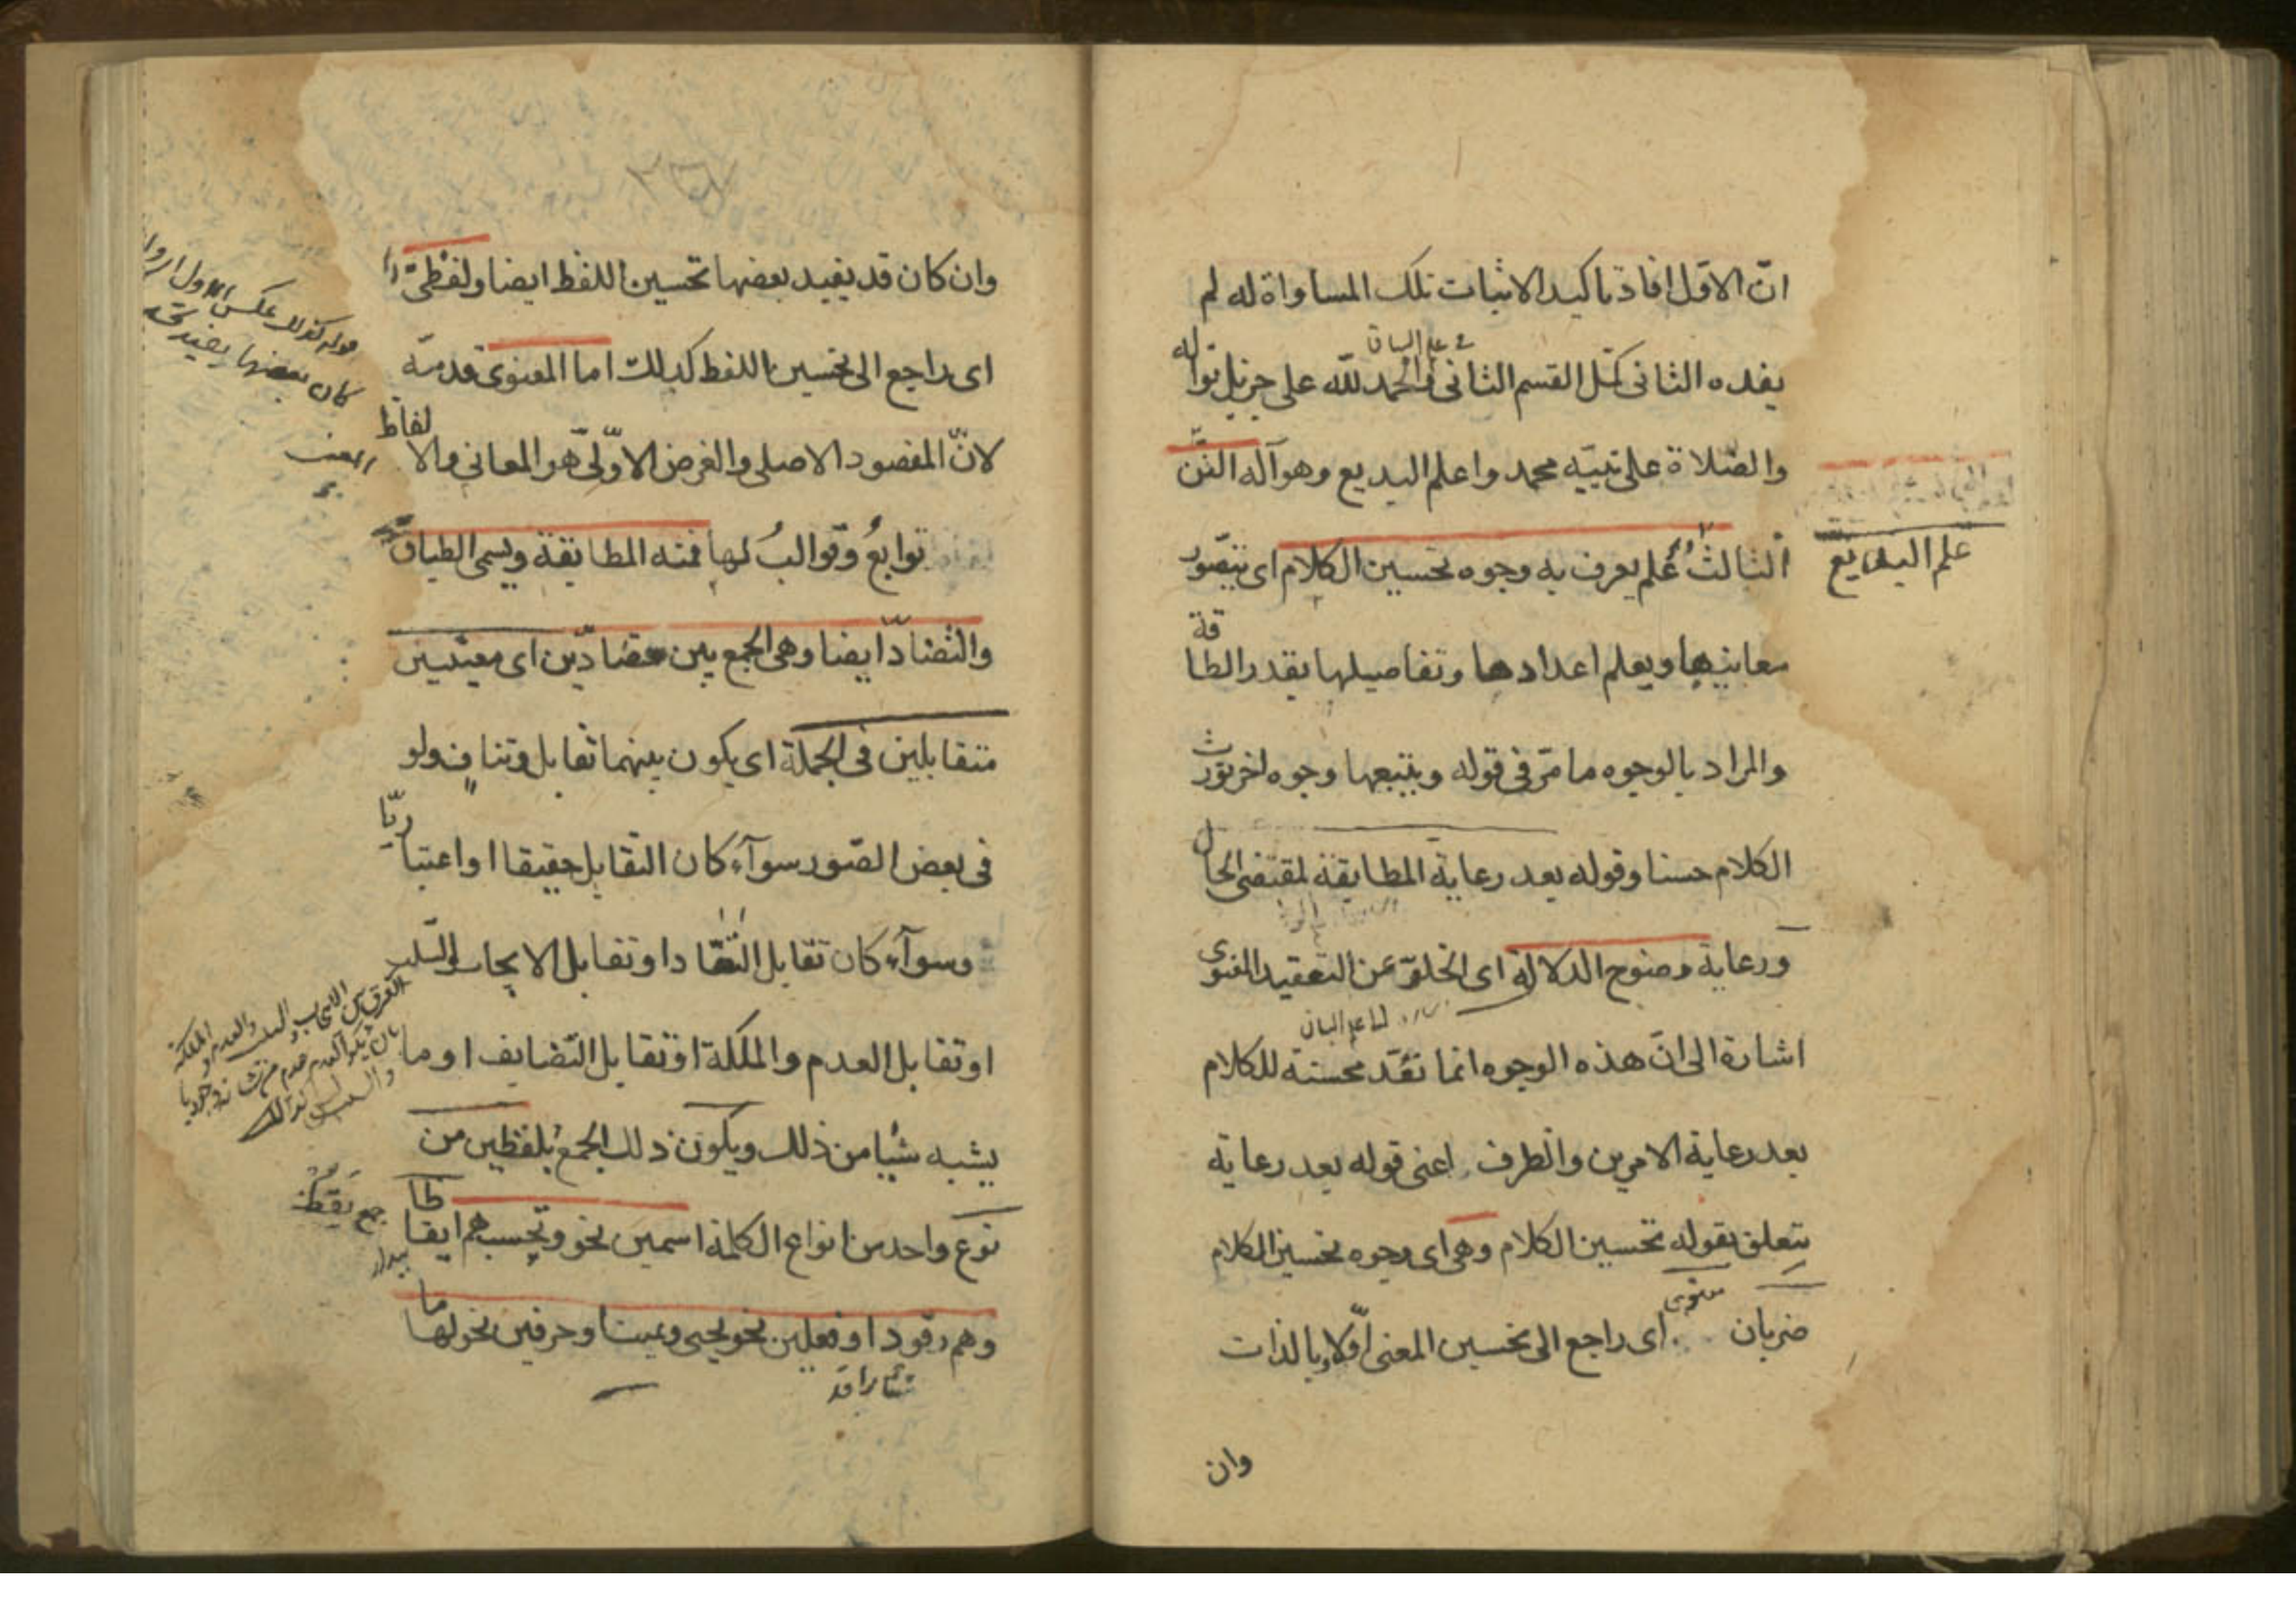 انّ الاوّل افاد تاكيد الاثبات تلك المساواة له لم
فى علم البيان
يفده الثانى كمل القسم الثانى والحمد للّه على جزيل نواله
والصّلاة على نبيّه محمد واعلم البديع وهو آله الفنّ
علم البدايع
الثالثُ عُلم يعرف به وجوه تحسين الكلام اى يتصوّر
معانيها ويعلم اعدادها وتفاصيلها بقدر الطاقة
والمراد بالوجوه ما مرّ فى قوله ويتبعها وجوه اخر تورث
الكلام حسنا وقوله بعد رعاية المطابقة لمقتضى الحال
ورعاية وضوح الدلالة اى الخلوّ عن التعقيد المعنوى
علم البيان
اشارة الى انّ هذه الوجوه انما تعّد محسنة للكلام
بعد رعاية الامرين والظرف اعنى قوله بعد رعاية
يتعلق بقوله تحسين الكلام وهى اى وجوه تحسين الكلام
ضربان معنوى اى راجع الى تحسين المعنى اوّلا وبالذات
وان
وان كان قد يفيد بعضها تحسين اللفظ ايضا ولفظىّ
اى راجع الى تحسين اللفظ كذلك اما المعنوى قدمه
كان بعضها يفيد
لانّ المقصود الاصلى والغرض الاوّلىّ هو المعانى والالفاظ
توابعُ وقوالبُ لها فمنه المطابقة ويسمى الطباق
والتضادّ ايضا وهى الجمع بين متضادّين اى معنيين
متقابلين فى الجملة اى يكون بينهما تقابل وتناف ولو
فى بعض الصّور سوآء كان التقابل حقيقا او اعتباريّا
وسوآء كان تقابل التّضادّ او تقابل الايجاب والسّلب
او تقابل العدم والملكة او تقابل التّضايف او ما
الفرق بين الايجاب والسلب والعدم والملكة
يشبه شيًا من ذلك ويكون ذلك الجمع بلفظين من
نوع واحد من انواع الكلمة اسمين نحو وتحسبهم ايقاظا
جمع يقظ
بيدار
وهم رقود او فعلين نحو يحيى ويميت او حرفين نحو لها ما